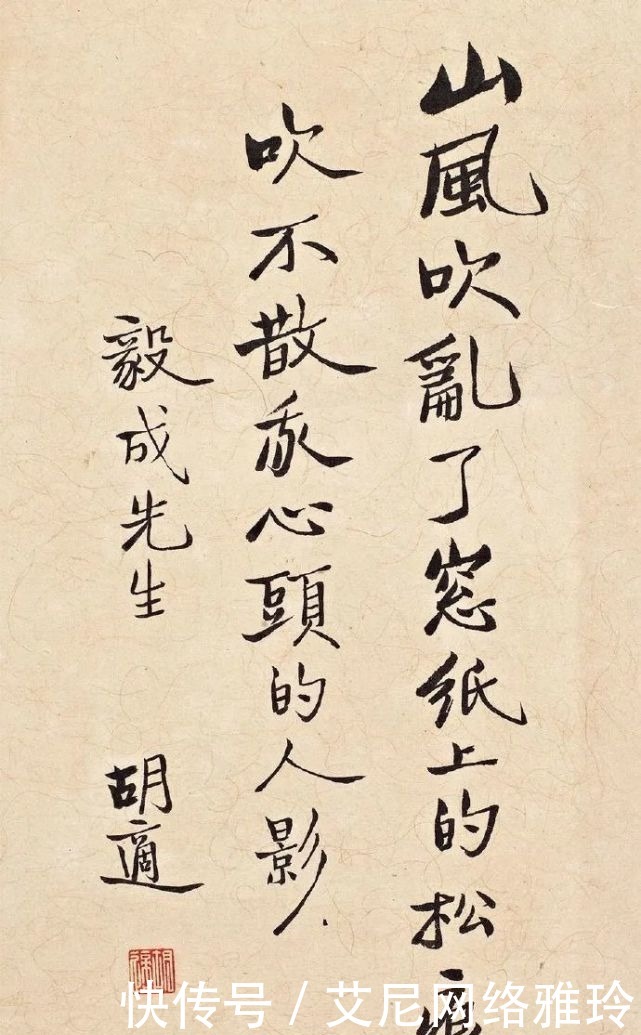 山風吹亂了窓紙上的松
吹不散我心頭的人影.
毅成先生
胡適
快传号 / 艾尼网络雅玲